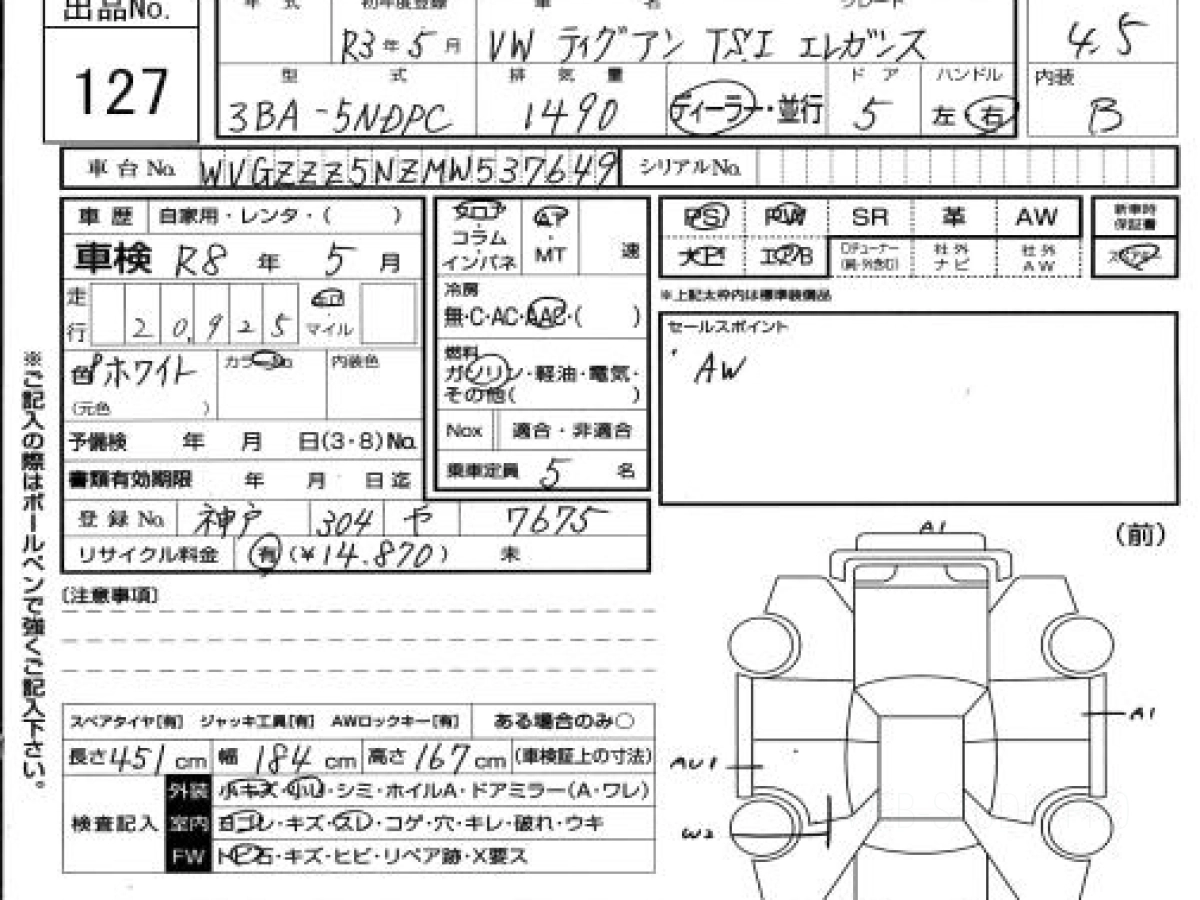 出品No.
127
車 式 初年度登録 車 名 グレード
R3年5月 VW ティグアン TSI エレガンス 4.5
型 式 排 気 量 ドア ハンドル 内装
3BA-5NDPC 1490 ディーラー・並行 5 左 右 B
車台No. WVGZZZ5NZMW537649 シリアルNo.
車歴 自家用・レンタ・( )
フロア コラム インパネ
AT・MT 速
PS PW SR 革 AW
新車時保証書
エアB
社外ナビ
社外AW
※上記太枠内は標準装備品
車検 R8年 5月
走行 20,925 キロ マイル
冷房
無・C・AC・AAC・( )
セールスポイント
・AW
色 ホワイト カラーNo 内装色
(元色 )
燃料
ガソリン・軽油・電気・
その他( )
予備検 年 月 日(3・8)No.
Nox 適合・非適合
書類有効期限 年 月 日迄
乗車定員 5 名
登録No. 神戸 304 や 7675
リサイクル料金 有 (¥14.870) 未
※ご記入の際はボールペンで強くご記入下さい。
(前)
A1
A1
AU1
W2
〔注意事項〕
スペアタイヤ[有] ジャッキ工具[有] AWロックキー[有] ある場合のみ○
長さ451cm 幅184cm 高さ167cm (車検証上の寸法)
検査記入
外装 小キズ・小U・シミ・ホイルA・ドアミラー(A・ワレ)
室内 ヨゴレ・キズ・スレ・コゲ・穴・キレ・破れ・ウキ
FW トビ石・キズ・ヒビ・リペア跡・X要ス